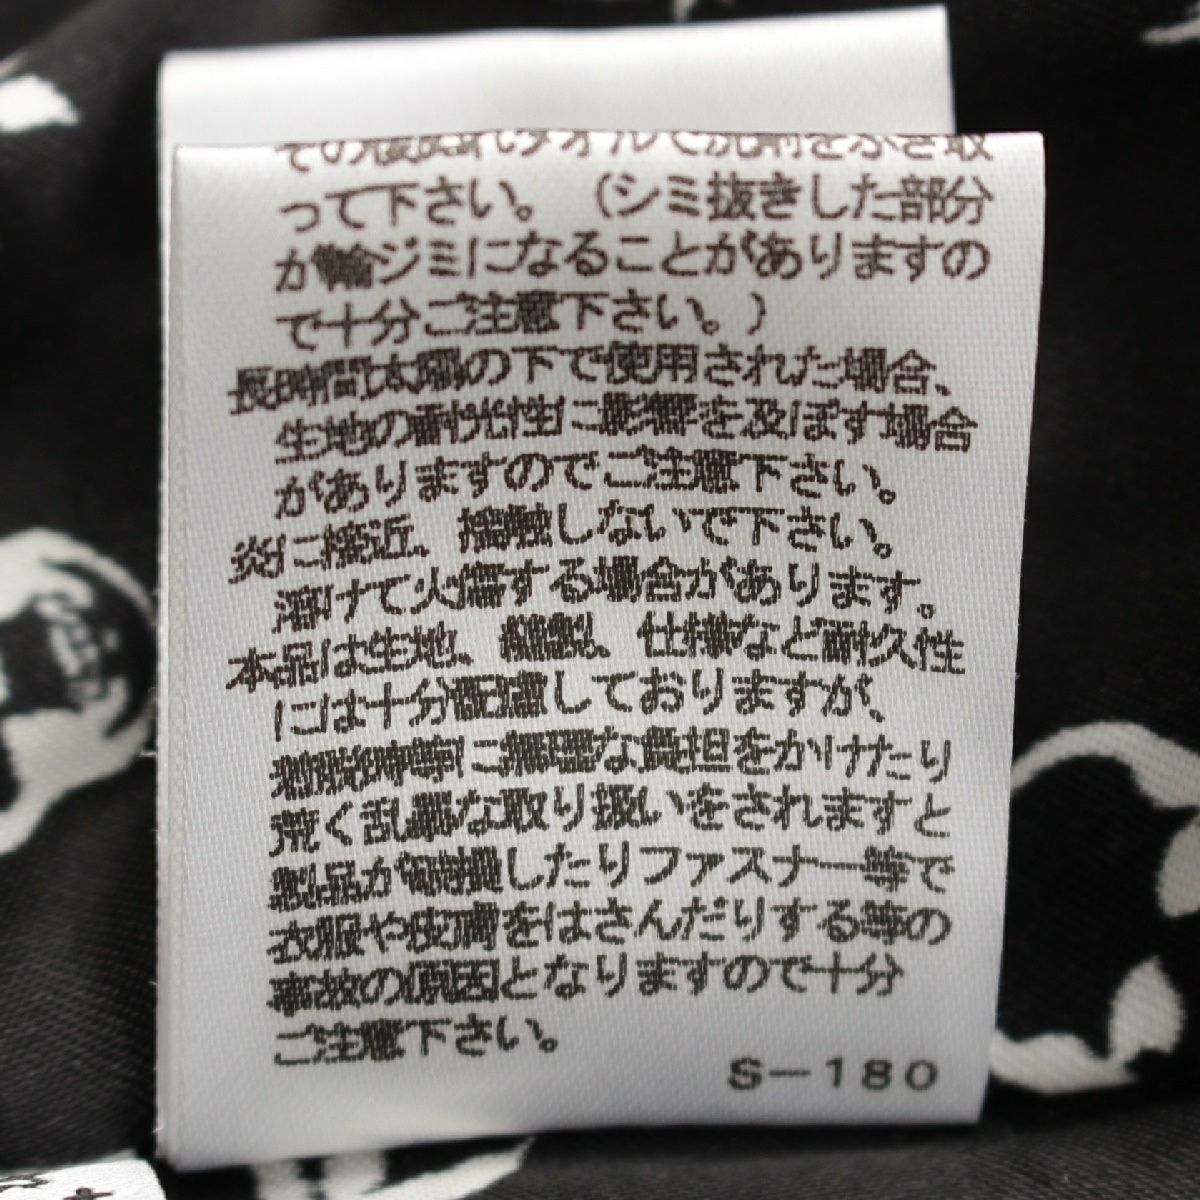 その後ぬれタオルで洗剤をふき取
って下さい。（シミ抜きした部分
が輪ジミになることがありますの
で十分ご注意下さい。）
長時間太陽の下で使用された場合、
生地の耐光性に影響を及ぼす場合
がありますのでご注意下さい。
炎に接近、接触しないで下さい。
溶けて火傷する場合があります。
本品は生地、縫製、仕様など耐久性
には十分配慮しておりますが、
着脱時等に無理な負担をかけたり
荒く乱暴な取り扱いをされますと
製品が破損したりファスナー等で
衣服や皮膚をはさんだりする等の
事故の原因となりますので十分
ご注意下さい。
S-180